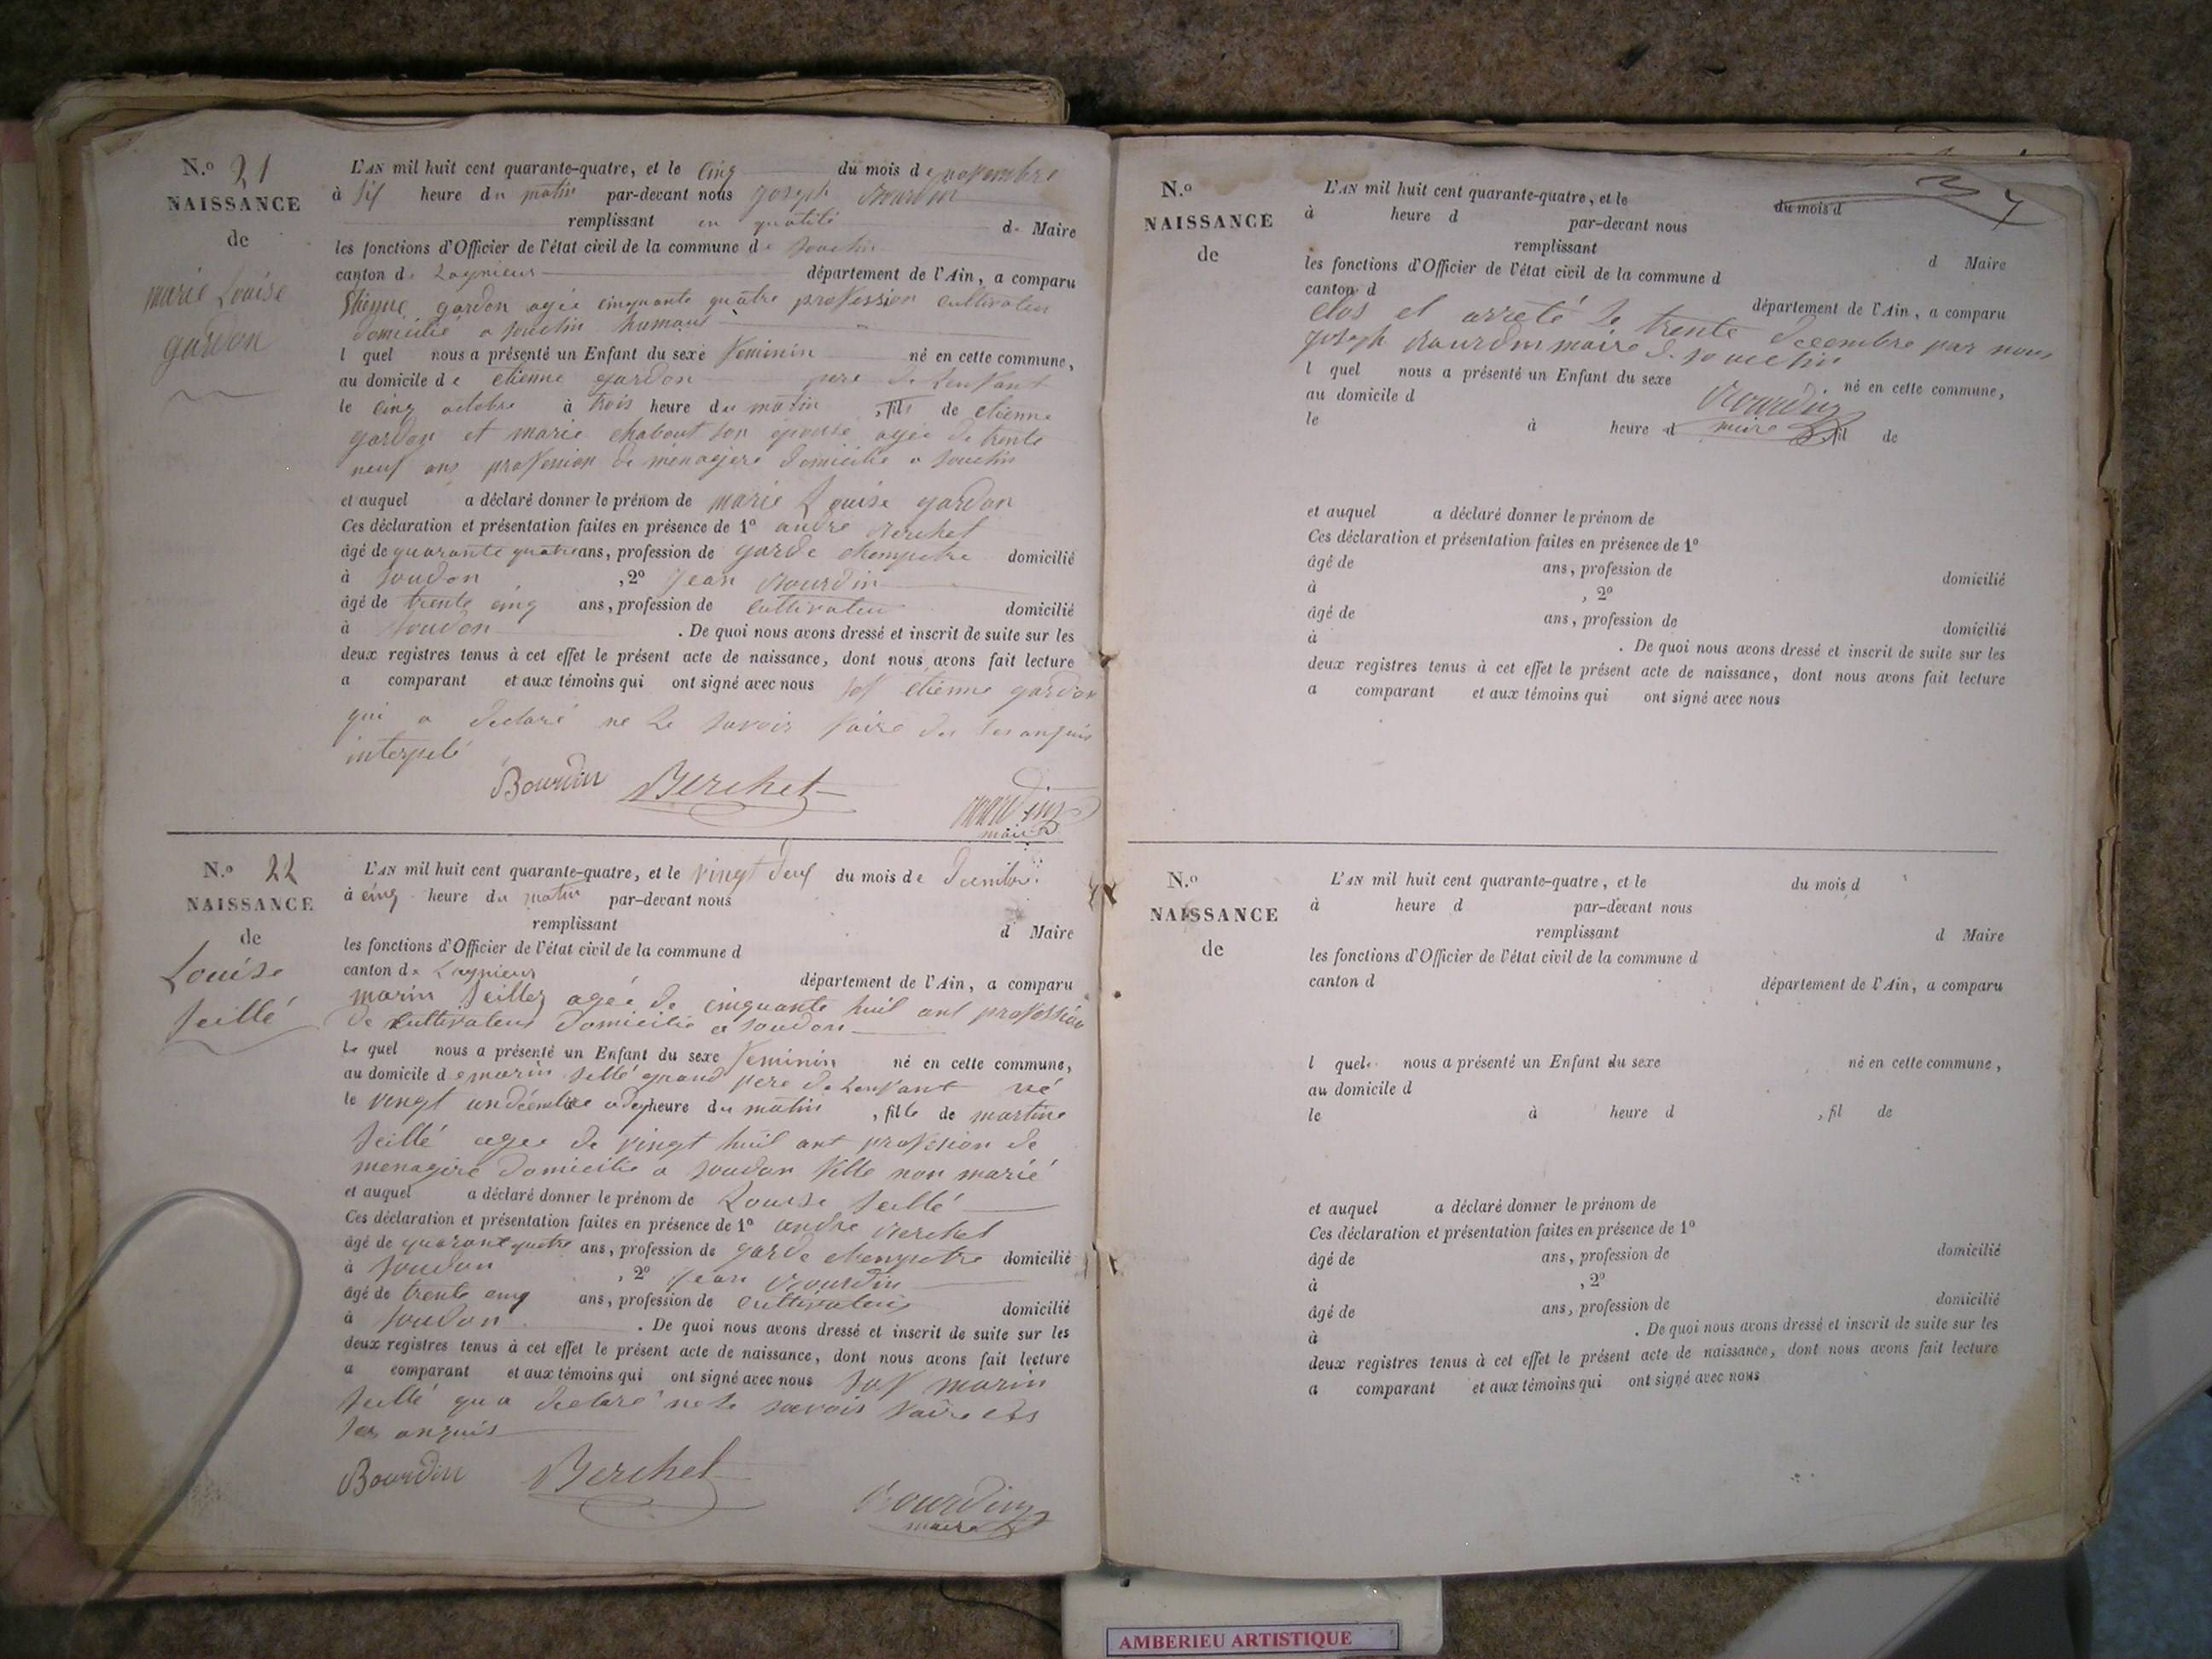 N.o 21
NAISSANCE
de
marie Louise
gardon
L'AN mil huit cent quarante-quatre, et le cinq du mois de novembre
à six heure du matin par-devant nous joseph Bourdin
remplissant en qualité de Maire
les fonctions d'Officier de l'état civil de la commune de souclin
canton de Lagnieux département de l'Ain, a comparu
Etienne gardon agée cinquante quatre profession cultivateur
domicilié a souclin
l quel nous a présenté un Enfant du sexe feminin né en cette commune,
au domicile de etienne gardon pere de Lenfant
le cinq octobre à trois heure du matin , fils de etienne
gardon et marie chabout son epouse agée de trente
neuf ans profession de menagere domicilie a souclin
et auquel a déclaré donner le prénom de marie Louise gardon
Ces déclaration et présentation faites en présence de 1o andre Berchet
âgé de quarante quatre ans, profession de garde chempetre domicilié
à soudon , 2o jean Bourdin
âgé de trente cinq ans, profession de cultivateur domicilié
à soudon . De quoi nous avons dressé et inscrit de suite sur les
deux registres tenus à cet effet le présent acte de naissance, dont nous avons fait lecture
a comparant et aux témoins qui ont signé avec nous sof etienne gardon
qui a declaré ne le savoir faire de
interpelé
Bourdin Berchet Bourdin
maire
N.o 22
NAISSANCE
de
Louise
seillé
L'AN mil huit cent quarante-quatre, et le vingt deux du mois de decembre
à cinq heure du matin par-devant nous
remplissant d Maire
les fonctions d'Officier de l'état civil de la commune d
canton de Lagnieux département de l'Ain, a comparu
marin seillez agée de cinquante huit ant profession
de cultivateur domicilie a soudon
Le quel nous a présenté un Enfant du sexe feminin né en cette commune,
au domicile de marin sellé grand pere de Lenfant né
le vingt un décembre a heure du matin , fille de martine
seillé agee de vingt huit ant profession de
menagere domicilie a soudon fille non marié
et auquel a déclaré donner le prénom de Louise seillé
Ces déclaration et présentation faites en présence de 1o andre Berchet
âgé de quarant quatre ans, profession de garde chempetre domicilié
à soudon , 2o jean Bourdin
âgé de trente cinq ans, profession de cultivateur domicilié
à soudon . De quoi nous avons dressé et inscrit de suite sur les
deux registres tenus à cet effet le présent acte de naissance, dont nous avons fait lecture
a comparant et aux témoins qui ont signé avec nous sof marin
seillé qu a declaré ne le savoir faire
Bourdin Berchet Bourdin
maire
N.o
NAISSANCE
de
L'AN mil huit cent quarante-quatre, et le du mois d
à heure d par-devant nous
remplissant d Maire
les fonctions d'Officier de l'état civil de la commune d
canton d département de l'Ain, a comparu
clos et arreté le trente decembre par nous
joseph Bourdin maire de souclin
l quel nous a présenté un Enfant du sexe né en cette commune,
au domicile d Bourdin
le à heure d maire , fil de
et auquel a déclaré donner le prénom de
Ces déclaration et présentation faites en présence de 1o
âgé de ans, profession de domicilié
à , 2o
âgé de ans, profession de domicilié
à . De quoi nous avons dressé et inscrit de suite sur les
deux registres tenus à cet effet le présent acte de naissance, dont nous avons fait lecture
a comparant et aux témoins qui ont signé avec nous
N.o
NAISSANCE
de
L'AN mil huit cent quarante-quatre, et le du mois d
à heure d par-devant nous
remplissant d Maire
les fonctions d'Officier de l'état civil de la commune d
canton d département de l'Ain, a comparu
l quel nous a présenté un Enfant du sexe né en cette commune,
au domicile d
le à heure d , fil de
et auquel a déclaré donner le prénom de
Ces déclaration et présentation faites en présence de 1o
âgé de ans, profession de domicilié
à , 2o
âgé de ans, profession de domicilié
à . De quoi nous avons dressé et inscrit de suite sur les
deux registres tenus à cet effet le présent acte de naissance, dont nous avons fait lecture
a comparant et aux témoins qui ont signé avec nous
AMBERIEU ARTISTIQUE